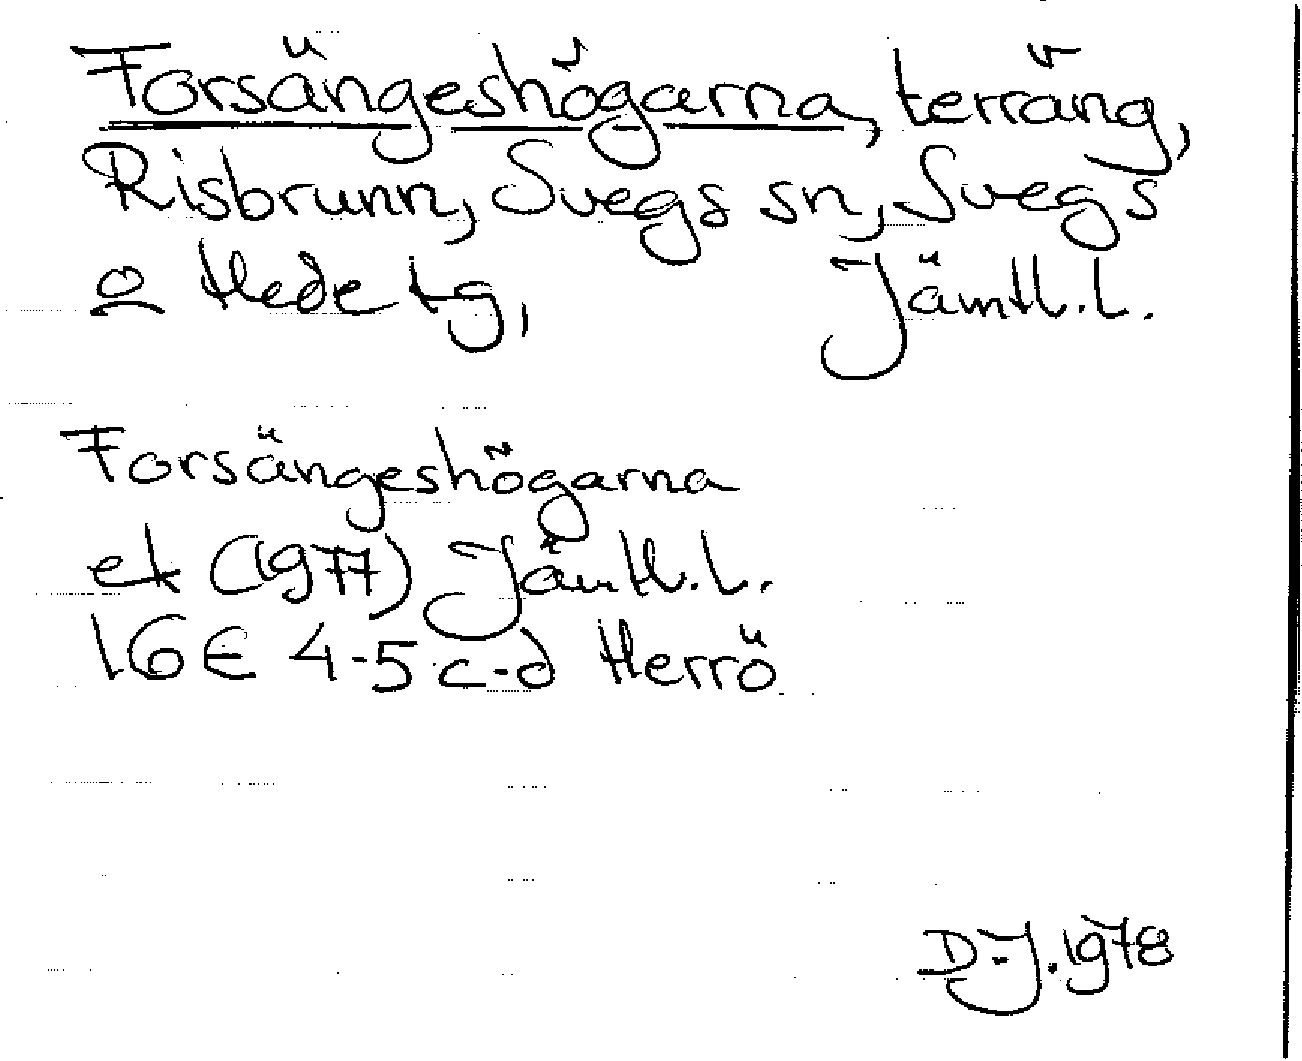 Forsängeshögarna, terräng,
Risbrunn, Svegs sn, Svegs
o Hede tg, Jämtl.l.
Forsängeshögarna
ek (1977) Jämtl.l.
16E 4-5 c-d Herrö
D-J.1978